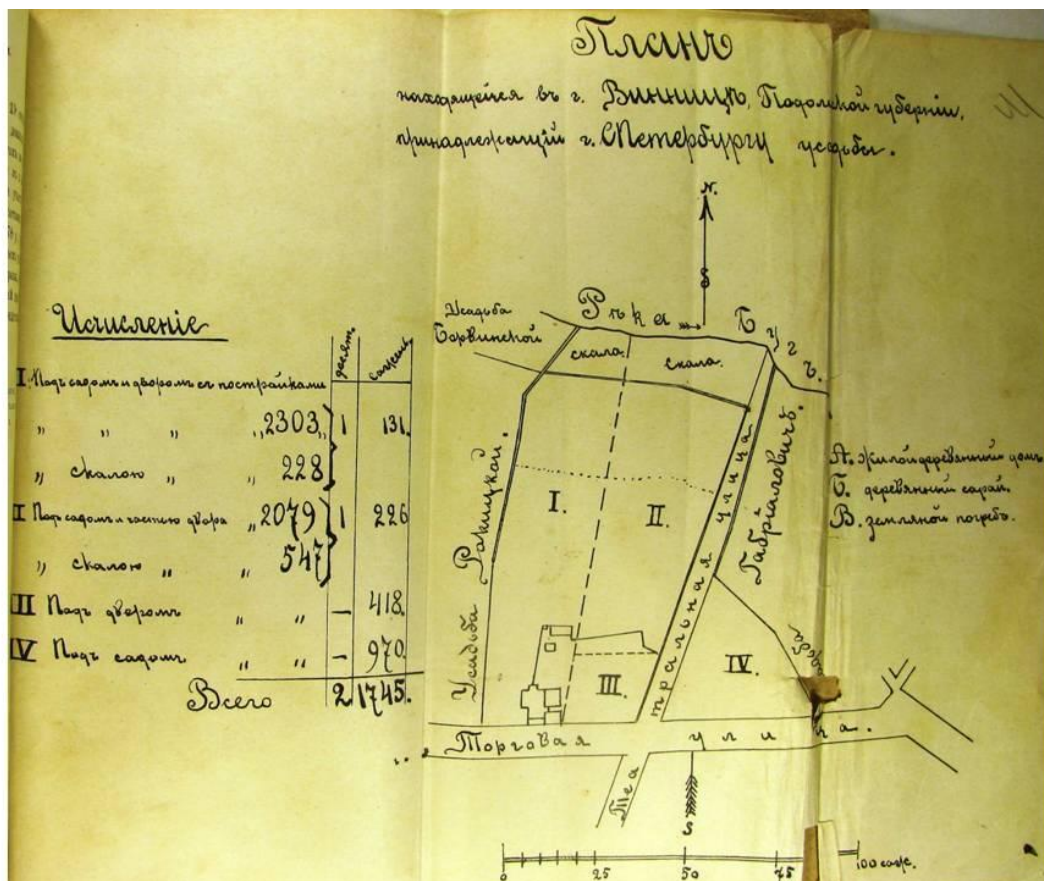 Планъ
находящейся въ г. Винницѣ, Подольской губерніи,
принадлежащій г. СПетербургу усадьбы.
N.
S
Исчисленіе
десят.
сажени
I. Подъ садомъ и дворомъ съ постройками
„ „ „ „ 2303 „ 1 131.
„ скалою „ 228
II Подъ садомъ и частью двора „ 2079 1 226
„ скалою „ „ 547
III Подъ дворомъ „ „ — 418.
IV Подъ садомъ „ „ — 970.
Всего 2 1745.
Усадьба
Борвинской
Рѣка Бугъ.
скала.
скала.
Усадьба Ракицкой.
I.
II.
III.
IV.
Театральная улица
Габріаловичъ.
А. жилой деревянный домъ
Б. деревянный сарай.
В. земляной погребъ.
Торговая улица.
S
0 25 50 75 100 саж.